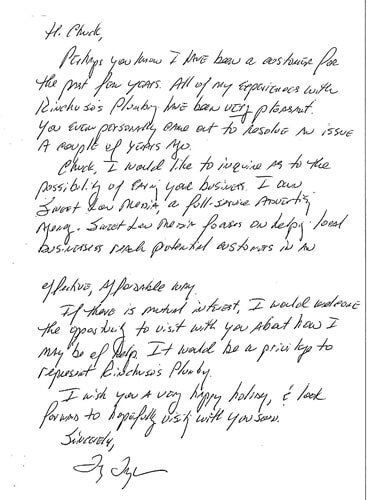 Hi Chuck,
Perhaps you know I have been a customer for
the past few years. All of my experiences with
Rinchuso's Plumbing have been very pleasant.
You even personally came out to resolve an issue
a couple of years ago.
Chuck, I would like to inquire as to the
possibility of your business. I own
Sweet Lew Media, a full-service advertising
agency. Sweet Lew Media focuses on helping local
businesses reach potential customers in an
effective, affordable way.
If there is mutual interest, I would welcome
the opportunity to visit with you about how I
may be of help. It would be a privilege to
represent Rinchuso's Plumbing.
I wish you a very happy holiday, & look
forward to hopefully visiting with you soon.
Sincerely,